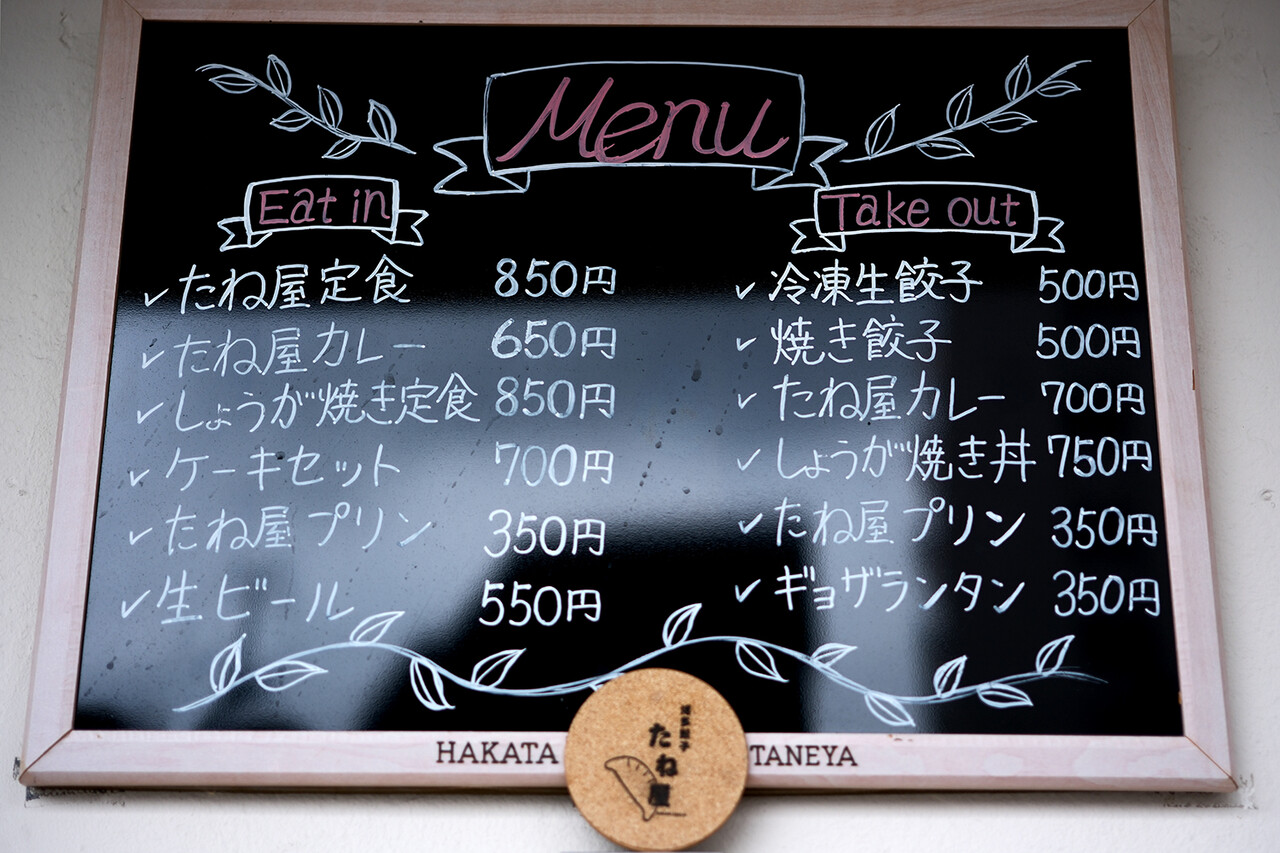 Menu
Eat in
たね屋定食 850円
たね屋カレー 650円
しょうが焼き定食 850円
ケーキセット 700円
たね屋プリン 350円
生ビール 550円
Take out
冷凍生餃子 500円
焼き餃子 500円
たね屋カレー 700円
しょうが焼き丼 750円
たね屋プリン 350円
ギョザランタン 350円
HAKATA TANEYA
博多餃子
たね屋